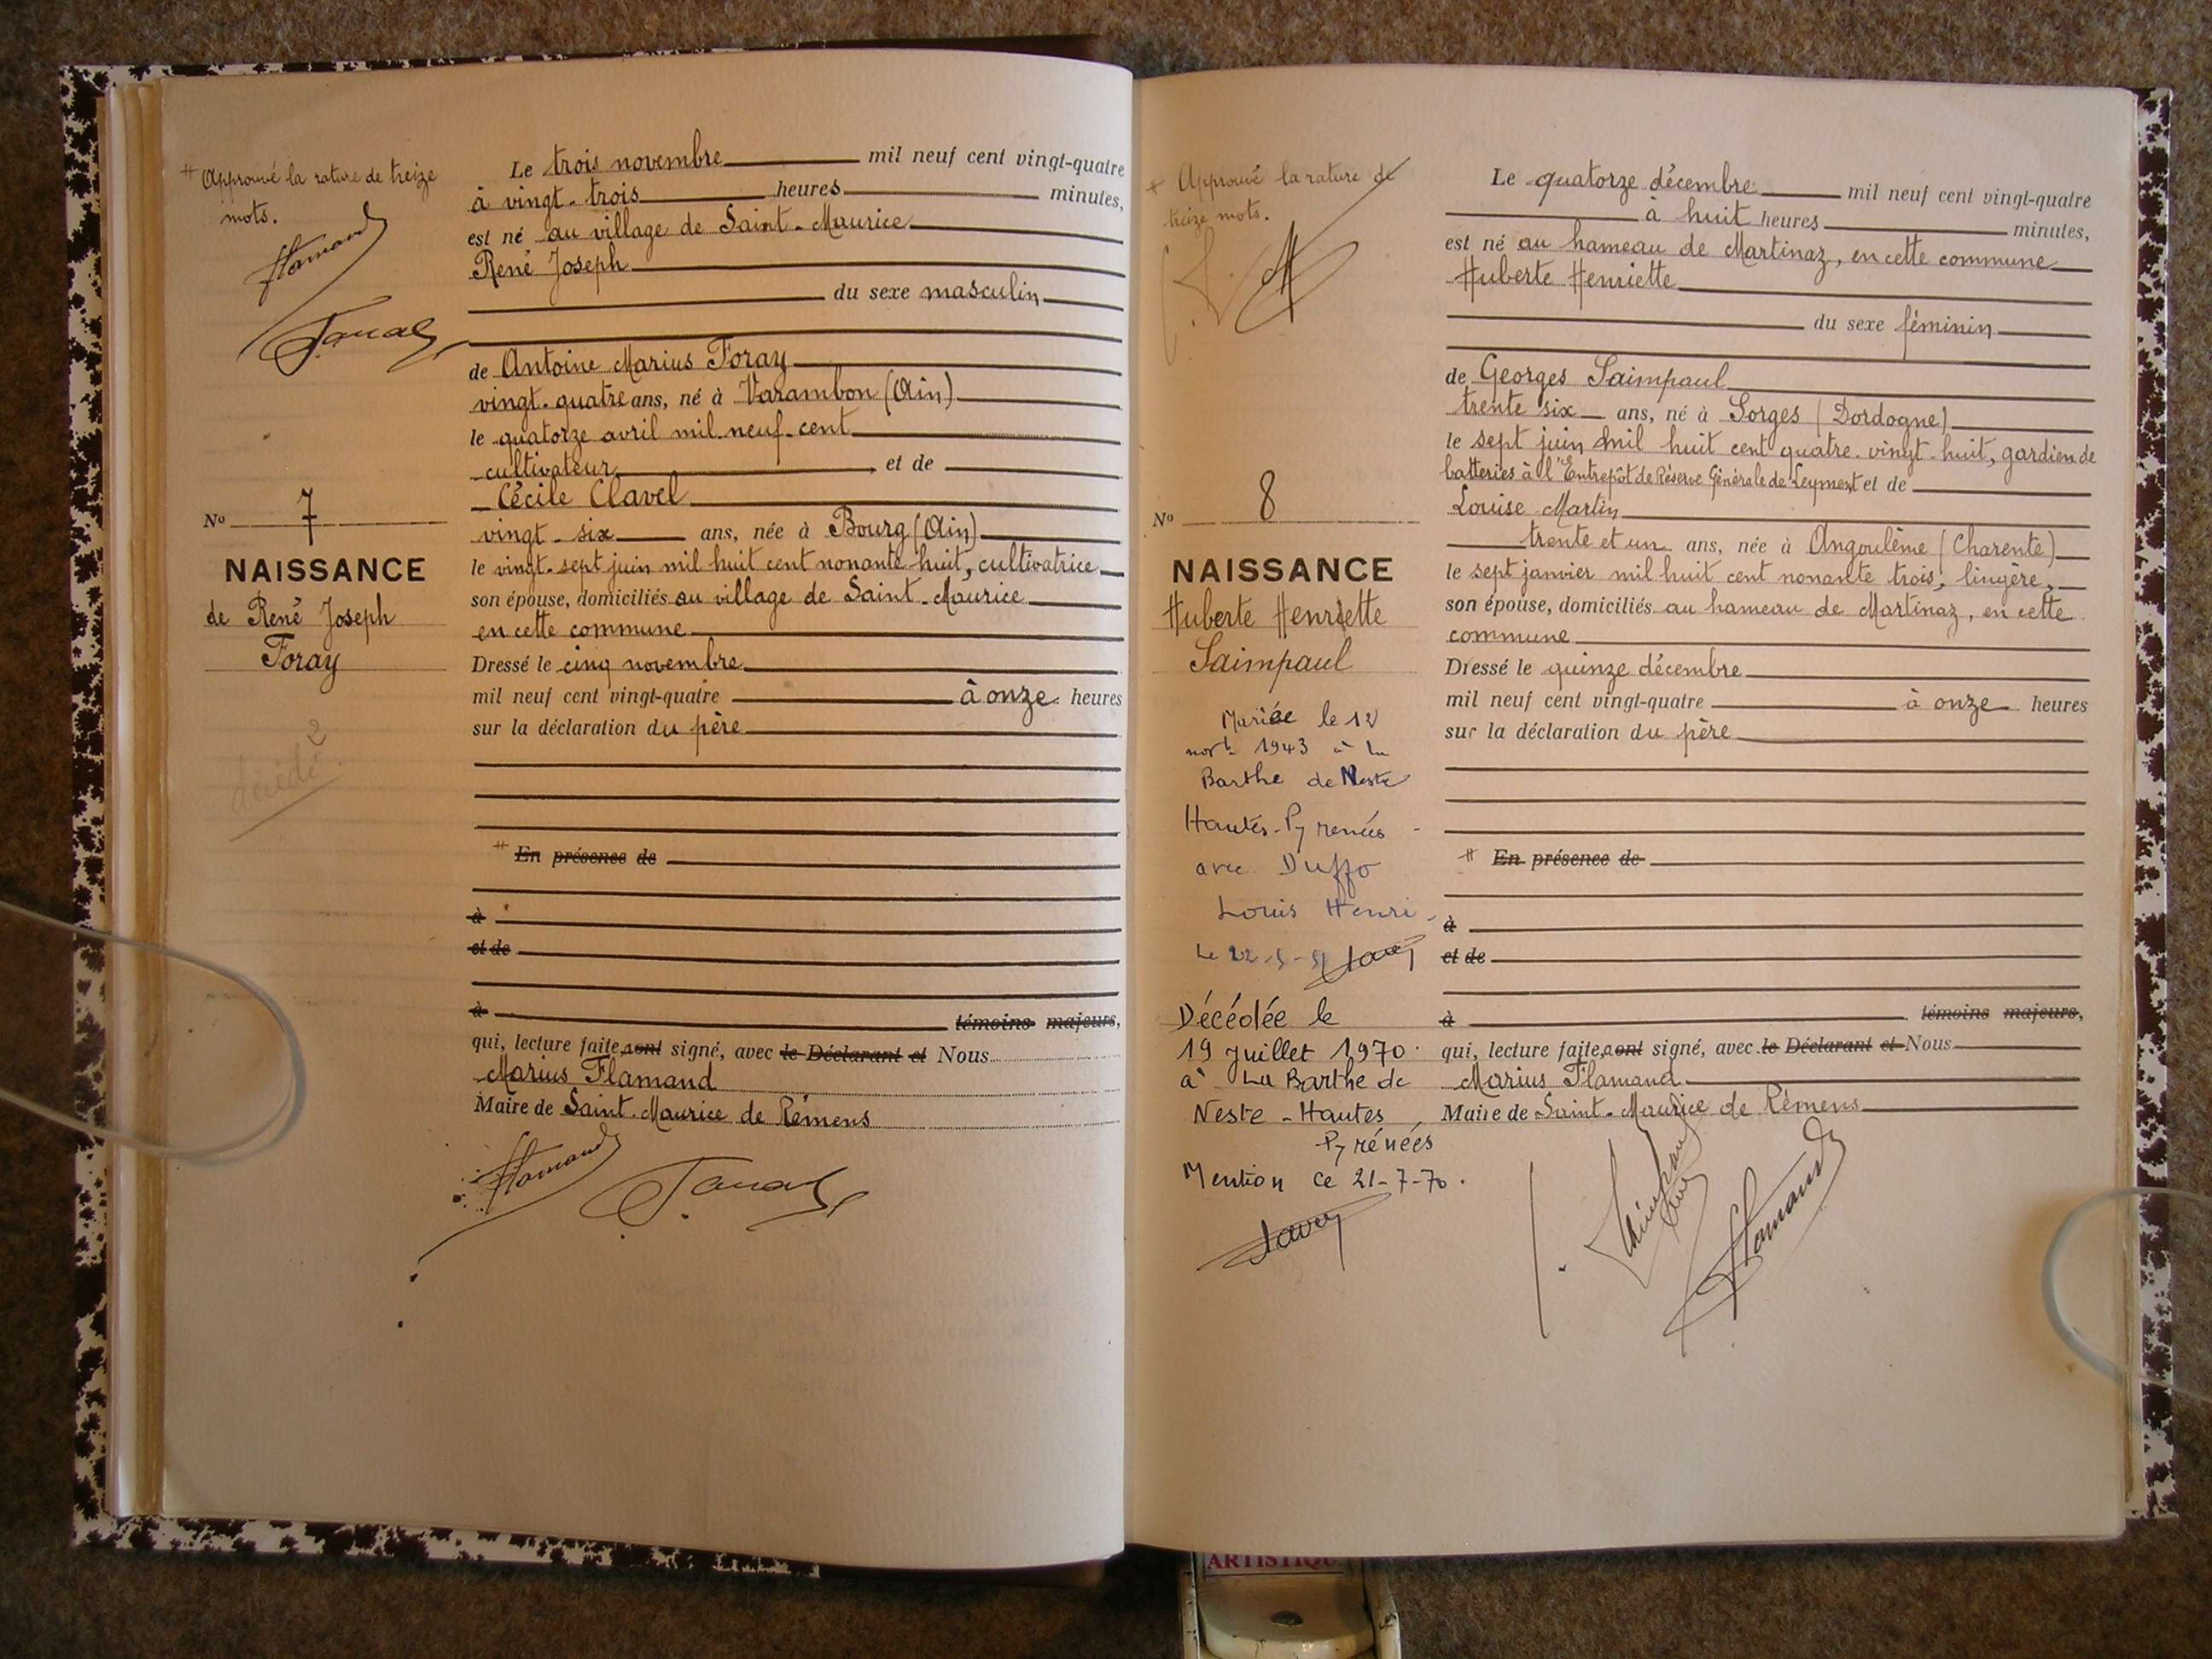 # Approuvé la rature de treize
mots.
Flamand
Foray
No 7
NAISSANCE
de René Joseph
Foray
décédé
2
Le trois novembre mil neuf cent vingt-quatre
à vingt-trois heures minutes,
est né au village de Saint-Maurice
René Joseph
du sexe masculin
de Antoine Marius Foray
vingt-quatre ans, né à Varambon (Ain)
le quatorze avril mil neuf cent
cultivateur, et de
Cécile Clavel
vingt-six ans, née à Bourg (Ain)
le vingt-sept juin mil huit cent nonante huit, cultivatrice
son épouse, domiciliés au village de Saint-Maurice
en cette commune
Dressé le cinq novembre
mil neuf cent vingt-quatre à onze heures
sur la déclaration du père
# En présence de
à
et de
à témoins majeurs,
qui, lecture faite, sont signé, avec le Déclarant et Nous
Marius Flamand
Maire de Saint-Maurice de Rémens
Flamand Foray
# Approuvé la rature de
treize mots.
No 8
NAISSANCE
Huberte Henriette
Saimpaul
Mariée le 12
novb 1943 à La
Barthe de Neste
Hautes-Pyrenées -
avec Duffo
Louis Henri.
Le 22-5-51
Décédée le
19 juillet 1970.
à La Barthe de
Neste - Hautes
-Pyrénées
Mention ce 21-7-70.
Le quatorze décembre mil neuf cent vingt-quatre
à huit heures minutes,
est né au hameau de Martinaz, en cette commune
Huberte Henriette
du sexe féminin
de Georges Saimpaul
trente six ans, né à Sorges (Dordogne)
le sept juin mil huit cent quatre-vingt-huit, gardien de
batteries à l'Entrepôt de Réserve Générale de Leyment et de
Louise Martin
trente et un ans, née à Angoulême (Charente)
le sept janvier mil huit cent nonante trois, lingère,
son épouse, domiciliés au hameau de Martinaz, en cette
commune
Dressé le quinze décembre
mil neuf cent vingt-quatre à onze heures
sur la déclaration du père
# En présence de
à
et de
à témoins majeurs,
qui, lecture faite, sont signé, avec le Déclarant et Nous
Marius Flamand
Maire de Saint-Maurice de Rémens
Flamand
ARTISTIQU